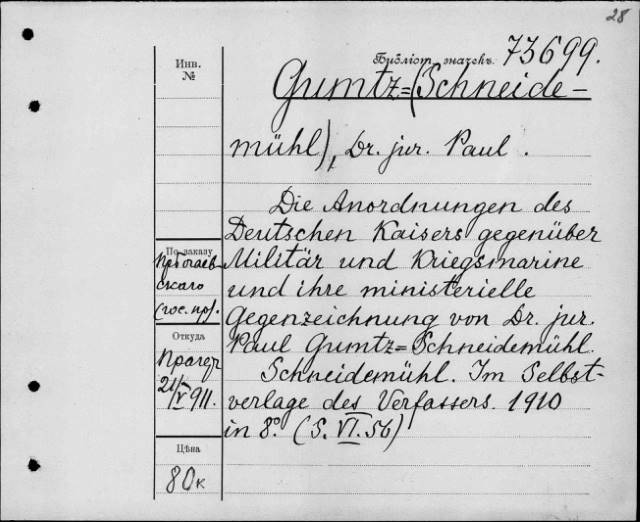 28
Инв.
№
Библіот. значекъ. 73699.
Gumtz=(Schneide-
mühl), Dr. jur. Paul.
Die Anordnungen des
Deutschen Kaisers gegenüber
Militär und Kriegsmarine
und ihre ministerielle
Gegenzeichnung von Dr. jur.
Paul Gumtz=Schneidemühl.
Schneidemühl. Im Selbst-
verlage des Verfassers. 1910
in 8°. (S. VI. 56)
По заказу
скаго
(гос. пр).
Откуда
Прагер
21/V 911.
Цѣна
80к